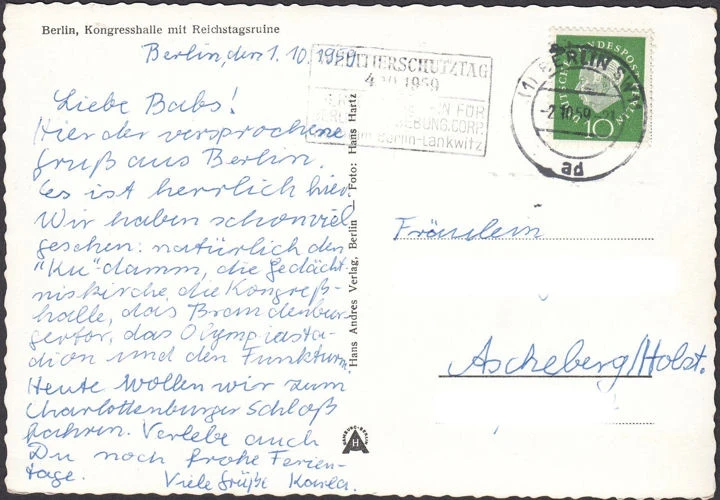 Berlin, Kongresshalle mit Reichstagsruine
Berlin, den 1. 10. 1959
WELTTIERSCHUTZTAG
4.10.1959
FÜR
CORP.
Berlin-Lankwitz
DEUTSCHE BUNDESPOST BERLIN
10
(1) BERLIN SW
-2.10.59-21
ad
Liebe Babs!
Hier der versprochene
Gruß aus Berlin.
Es ist herrlich hier.
Wir haben schon viel
gesehen: natürlich den
"Ku"damm, die Gedächt-
niskirche, die Kongreß-
halle, das Brandenbur-
gertor, das Olympiasta-
dion und den Funkturm.
Heute wollen wir zum
Charlottenburger Schloß
fahren. Verlebe auch
Du noch frohe Ferien-
tage. Viele Grüße Karla.
Hans Andres Verlag, Berlin — Foto: Hans Hartz
HAMBURG-BERLIN
H
Fräulein
Ascheberg/Holst.